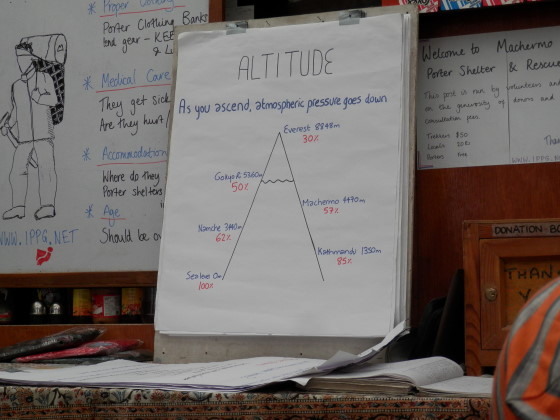 * Proper Clothing
Porter Clothing Banks
lend gear - KEE
& Li
* Medical Care
They get Sick
Are they hurt
* Accommodation
Where do they
Porter shelters
* Age
Should be ov
WWW.IPPG.NET
ALTITUDE
As you ascend, atmospheric pressure goes down
Everest 8848m
30%
Gokyo Ri 5360m
50%
Machermo 4470m
57%
Namche 3440m
62%
Kathmandu 1350m
85%
Sea level 0m
100%
Welcome to Machermo
Porter Shelter & Rescue
This post is run by volunteers and
on the generosity of donors and
consultation fees.
Trekkers $50
Porters free
WWW.IPPG
DONATION BO
THAN
Y